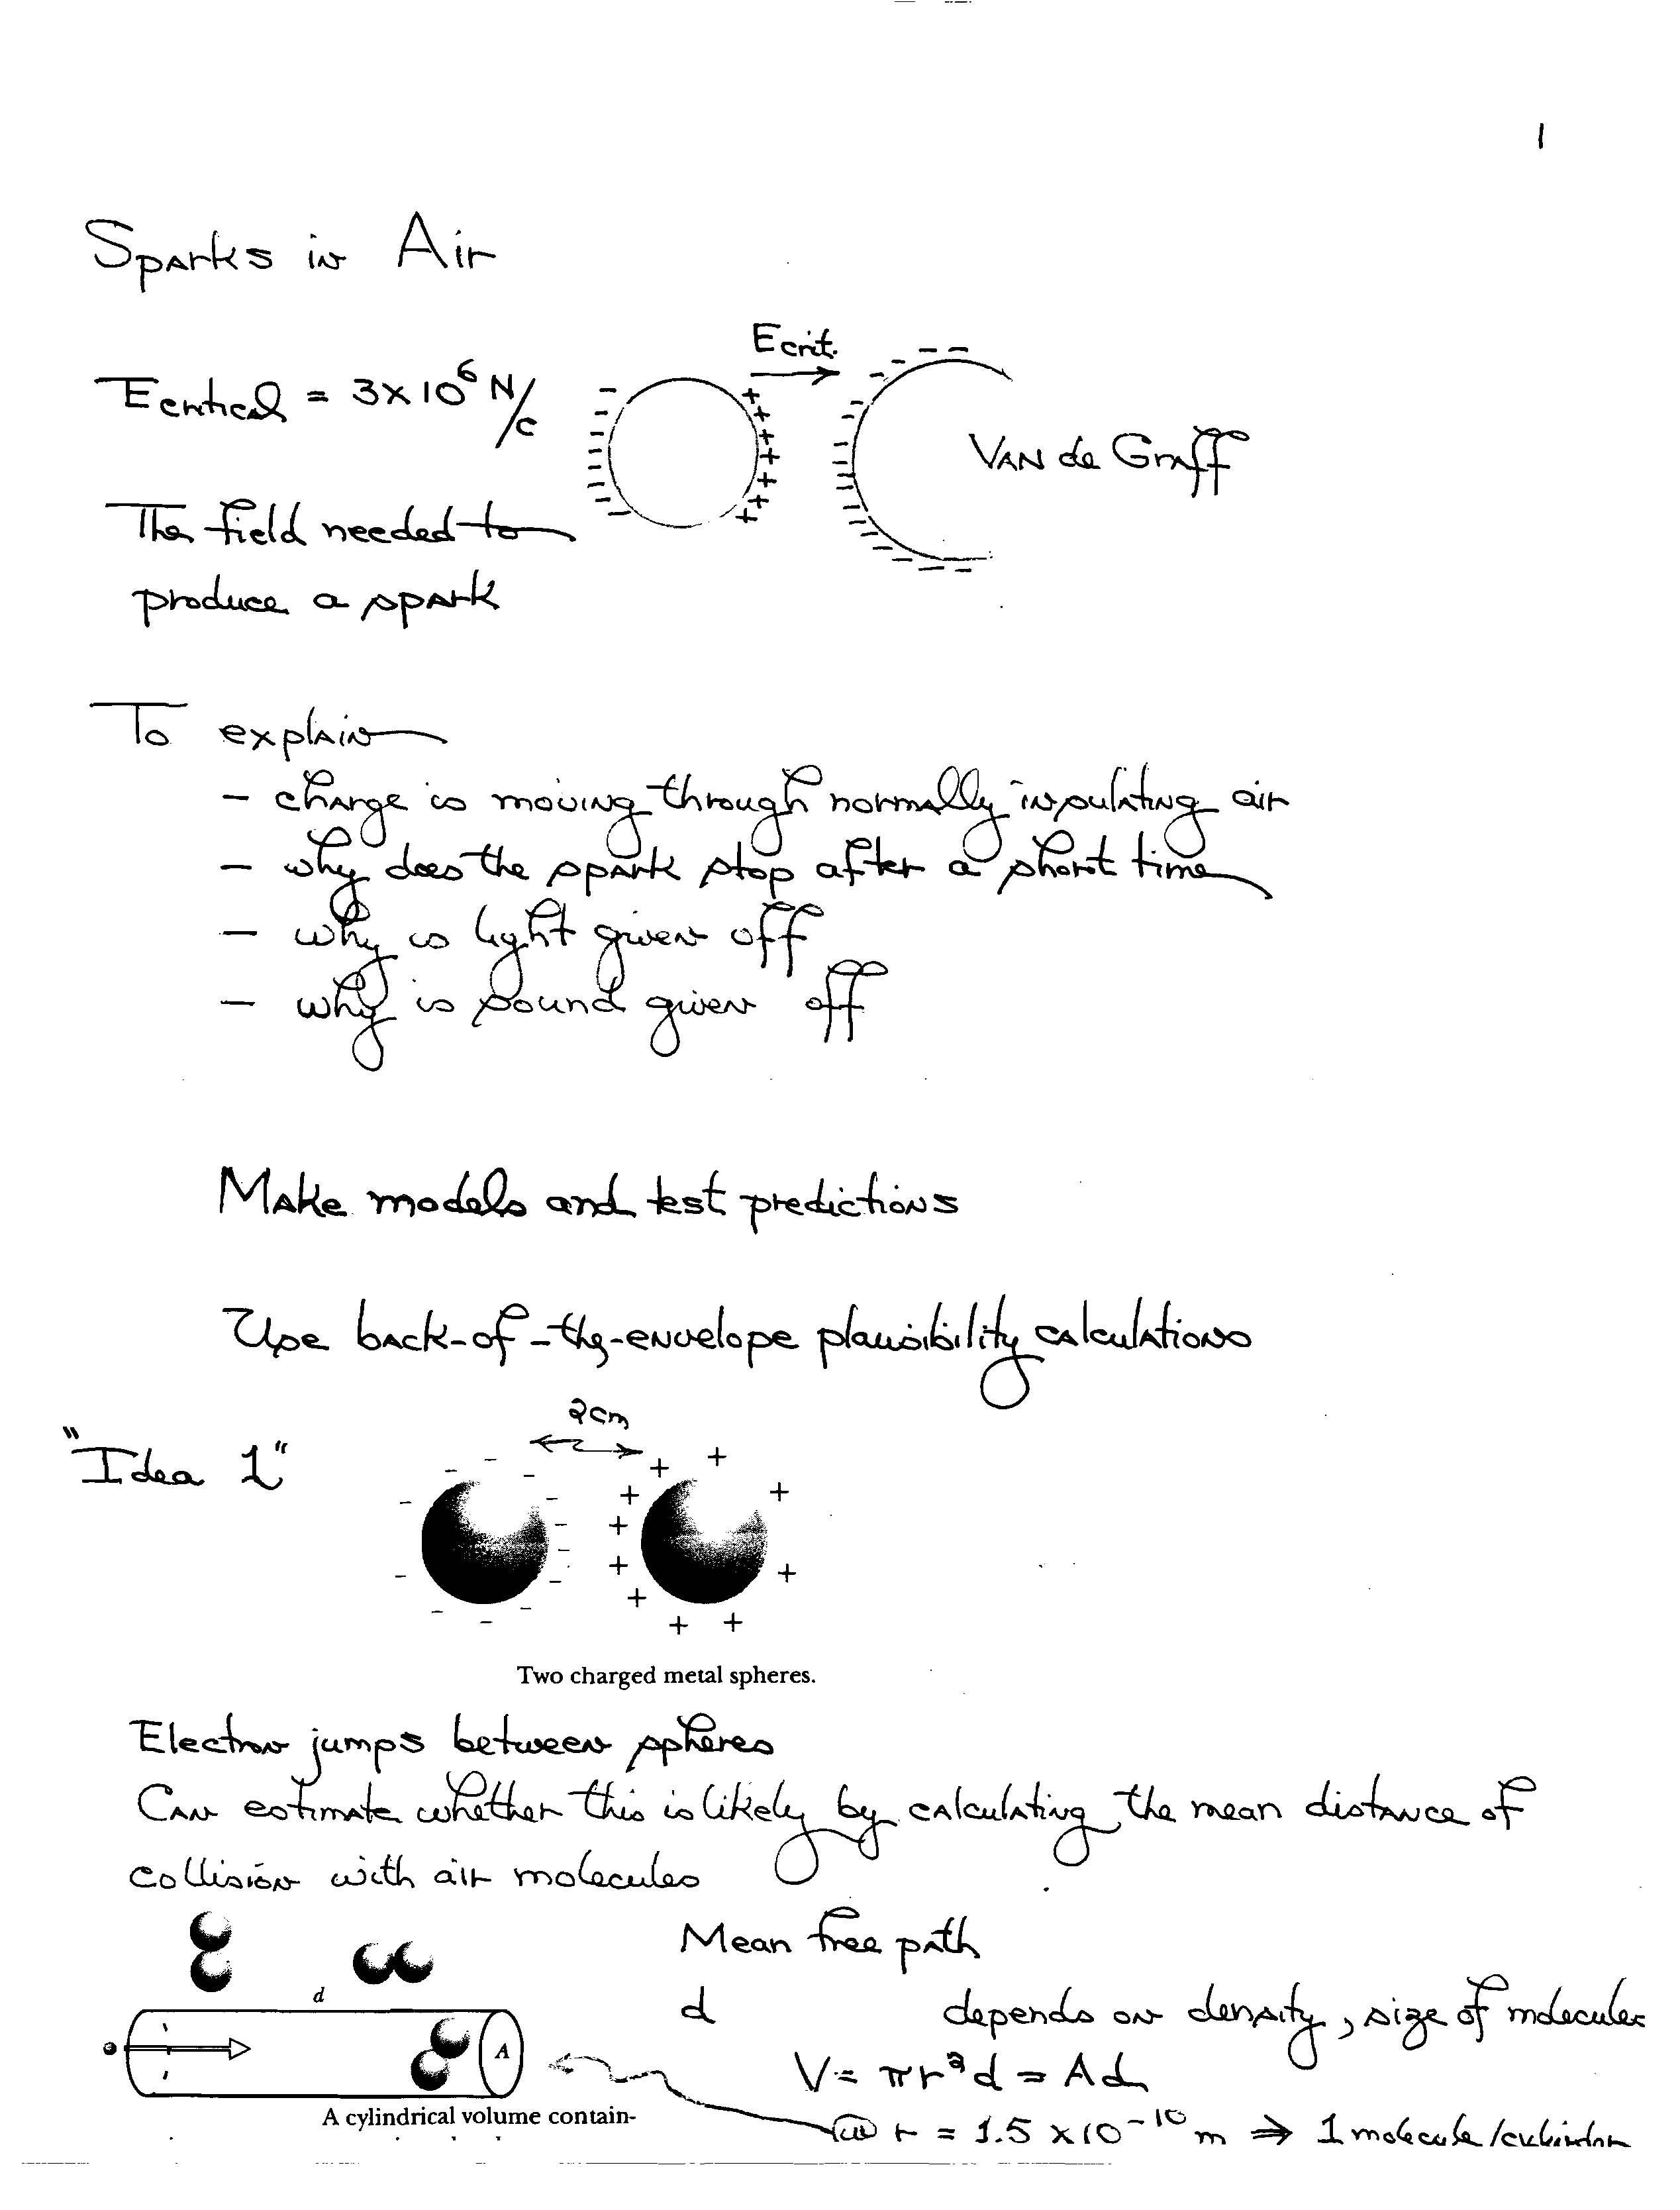 1
Sparks in Air
Ecrit.
Ecritical = 3x10⁶ N/c
Van de Graff
The field needed to
produce a spark
To explain
- charge is moving through normally insulating air
- why does the spark stop after a short time
- why is light given off
- why is sound given off
Make models and test predictions
Use back-of-the-envelope plausibility calculations
2cm
"Idea 1"
Two charged metal spheres.
Electron jumps between spheres
Can estimate whether this is likely by calculating the mean distance of
collision with air molecules
Mean free path
d
d depends on density, size of molecules
A
V = πr²d = Ad
A cylindrical volume contain-
r = 1.5 x10⁻¹⁰ m ⇒ 1 molecule/cylinder